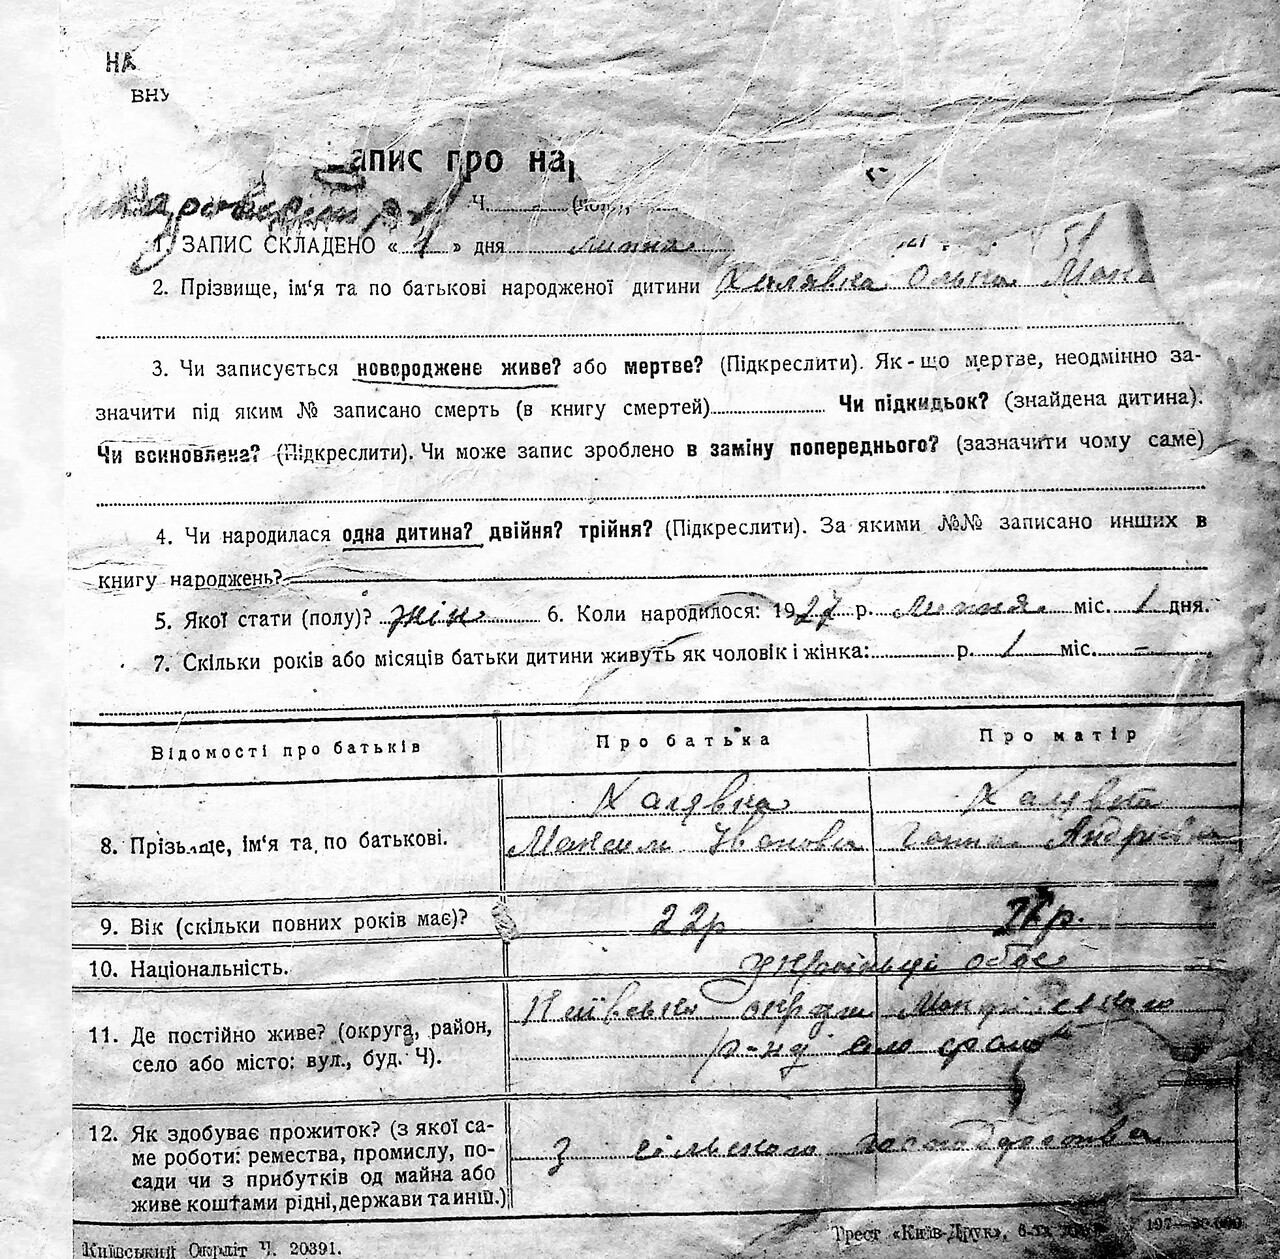 НА
ВНУ
апис про нар
Ч.
1. ЗАПИС СКЛАДЕНО « 1 » дня липня
2. Прізвище, ім'я та по батькові народженої дитини Халявка Ольна
3. Чи записується новороджене живе? або мертве? (Підкреслити). Як-що мертве, неодмінно за-
значити під яким № записано смерть (в книгу смертей) Чи підкидьок? (знайдена дитина).
Чи всиновлена? (Підкреслити). Чи може запис зроблено в заміну попереднього? (зазначити чому саме)
4. Чи народилася одна дитина? двійня? трійня? (Підкреслити). За якими №№ записано инших в
книгу народжень?
5. Якої стати (полу)? жін 6. Коли народилося: 1927 р. липня міс. 1 дня.
7. Скільки років або місяців батьки дитини живуть як чоловік і жінка: р. 1 міс. –
Відомості про батьків Про батька Про матір
Халявка Халявка
8. Прізвище, ім'я та по батькові. Максим Іванови Ганна Андріївна
9. Вік (скільки повних років має)? 22р
10. Національність. українці обоє
11. Де постійно живе? (округа, район, Київська округи
село або місто: вул., буд. Ч). р-ну село
12. Як здобуває прожиток? (з якої са-
ме роботи: ремества, промислу, по- з сільского господарства
сади чи з прибутків од майна або
живе коштами рідні, держави та инш.)
Київський Окрліт Ч. 20391. Трест «Київ-Друк»,